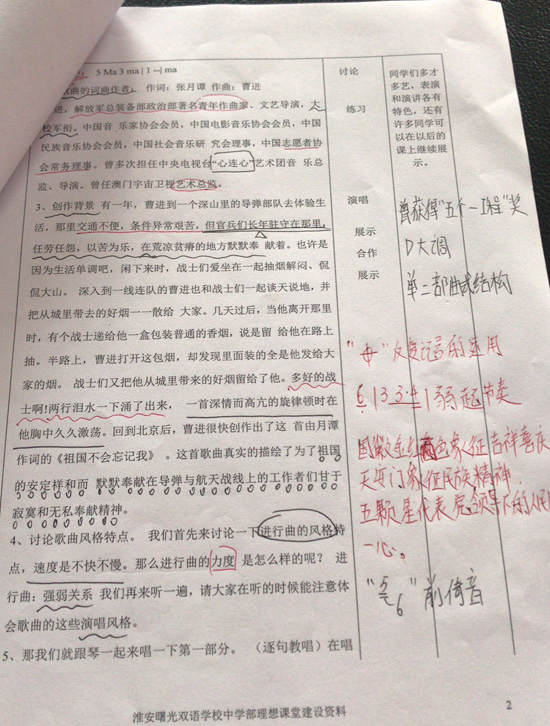 5 Ma 3 ma | 1 --| ma
歌曲的词曲作者： 作词：张月谭 作曲：曹进
进，解放军总装备部政治部著名青年作曲家、文艺导演，大
校军衔。中国音 乐家协会会员，中国电影音乐协会会员，中国
民族音乐协会会员，中国社会音乐研 究会理事，中国志愿者协
会常务理事。曾多次担任中央电视台“心连心”艺术团音 乐总
监、导演。曾任澳门宇宙卫视艺术总监。
3、创作背景 有一年，曹进到一个深山里的导弹部队去体验生
活，那里交通不便，条件异常艰苦，但官兵们长年驻守在那里，
任劳任怨，以苦为乐，在荒凉贫瘠的地方默默奉 献着。也许是
因为生活单调吧，闲下来时，战士们爱坐在一起抽烟解闷、侃
侃大山。 深入到一线连队的曹进也和战士们一起谈天说地，并
把从城里带去的好烟一一散给 大家。几天过后，当他离开那里
时，有个战士递给他一盒包装普通的香烟，说是留 给他在路上
抽。半路上，曹进打开这包烟，却发现里面装的全是他发给大
家的烟。 战士们又把他从城里带来的好烟留给了他。多好的战
士啊!两行泪水一下涌了出来， 一首深情而高亢的旋律顿时在
他胸中久久激荡。回到北京后，曹进很快创作出了这 首由月潭
作词的《祖国不会忘记我》 。这首歌曲真实的描绘了为了祖国
的安定祥和而 默默奉献在导弹与航天战线上的工作者们甘于
寂寞和无私奉献精神。
4、讨论歌曲风格特点。 我们首先来讨论一下进行曲的风格特
点，速度是不快不慢。那么进行曲的力度 是怎么样的呢？ 进
行曲：强弱关系 我们再来听一遍，请大家在听的时候能注意体
会歌曲的这些演唱风格。
5、那我们就跟琴一起来唱一下第一部分。 （逐句教唱）在唱
讨论
练习
演唱
展示
合作
展示
同学们多才
多艺，表演
和演讲各有
特色，还有
许多同学可
以在以后的
课上继续展
示。
曾获得“五个一工程”奖
D大调
单二部曲式结构
反复记号的运用
6 | 3 3·4 | 弱起节奏
国徽金红 色象征吉祥喜庆
天安门象征民族精神，
五颗星代表党领导下的人民
一心。
“5 6” 前倚音
淮安曙光双语学校中学部理想课堂建设资料
2